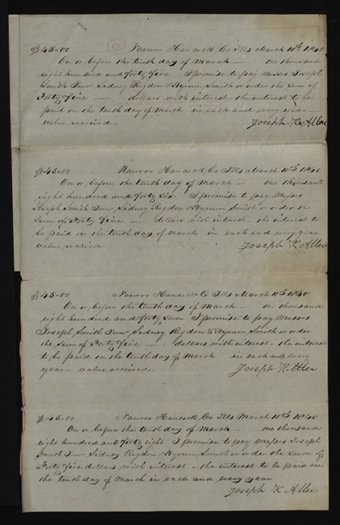 $45-00 Nauvoo Hancock Co Ills March 10th 1840
On or, before the tenth day of March — one thousand
eight hundred and forty five I promise to pay Messrs Joseph
Smith Junr Sidney Rigdon & Hyrum Smith or order the Sum of
Forty five — dollars with interest the interest to be
paid on the tenth day of March in each and every year
value received —
Joseph K. Allen
$45-00 Nauvoo Hancock Co Ills March 10th 1840
On or, before the tenth day of March — one thousand
eight hundred and forty Six I promise to pay Messrs
Joseph Smith Junr Sidney Rigdon Hyrum Smith or order
Sum of Forty five — dollars with interest, the interest to
be paid on the tenth day of March in each and every year
value received
Joseph K. Allen
$45-00 Nauvoo Hancock Co Ills March 10th 1840
On or, before the tenth day of March — one thousand
eight hundred and forty Seven I promise to pay Messrs
Joseph Smith Junr Sidney Rigdon & Hyrum Smith or order
the Sum of Forty five — dollars with interest - the interest
to be paid on the tenth day of March in each and every
year — value received.
Joseph K. Allen
$45-00 Nauvoo Hancock, Co Ills March 10th 1840
On or, before the tenth day of March — one thousand
eight hundred and forty eight I promise to pay Messrs Joseph
Smith Junr Sidney Rigdon Hyrum Smith or order the Sum of
Forty five dollars with interest - the interest to be paid on the
tenth day of March in each and every year
Joseph K. Allen